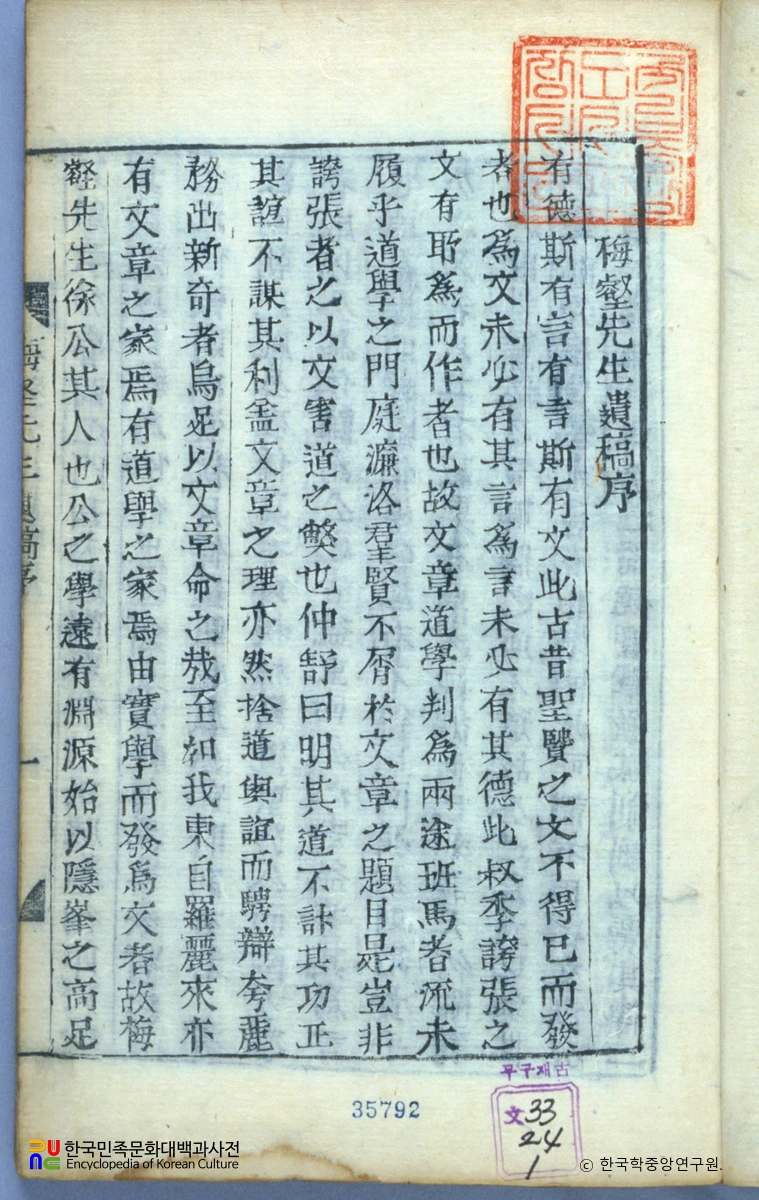 梅壑先生遺稿序
有德斯有言有言斯有文此古昔聖賢之文不得已而發
者也爲文未必有其言爲言未必有其德此叔季誇張之
文有耶爲而作者也故文章道學判爲兩途班馬者流未
履乎道學之門庭濂洛羣賢不屑於文章之題目是豈非
誇張者之以文害道之獘也仲舒曰明其道不計其功正
其誼不謀其利盖文章之理亦然捨道與誼而騁辯夸麗
務出新奇者烏足以文章命之哉至如我東自羅麗來亦
有文章之家焉有道學之家焉由實學而發爲文者故梅
壑先生徐公其人也公之學遠有淵源始以隱峯之高足
梅壑先生遺稿序
一
35792
文 33
24
1
한국민족문화대백과사전
Encyclopedia of Korean Culture
© 한국학중앙연구원.